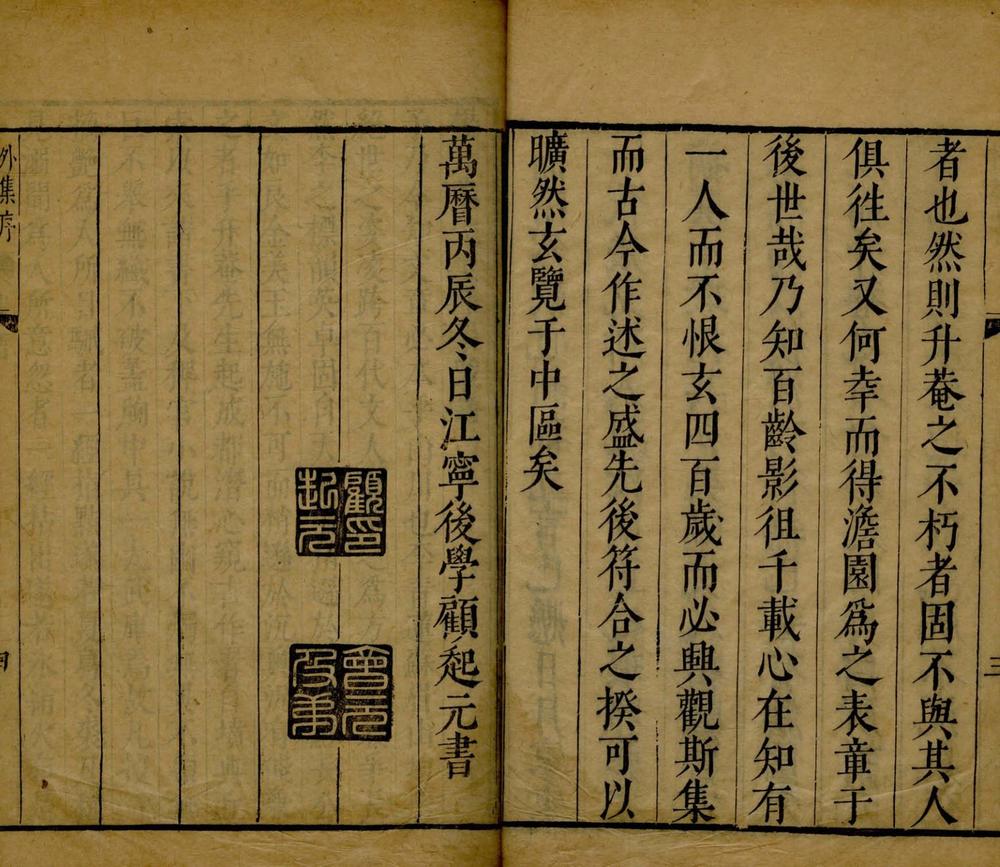 者也然則升菴之不朽者固不與其人
俱徃矣又何幸而得澹園爲之表章于
後世哉乃知百齡影徂千載心在知有
一人而不恨玄四百歲而必興觀斯集
而古今作述之盛先後符合之揆可以
曠然玄覽于中區矣
三
萬曆丙辰冬日江寧後學顧起元書
顧印
起元
會元
及弟
外集序